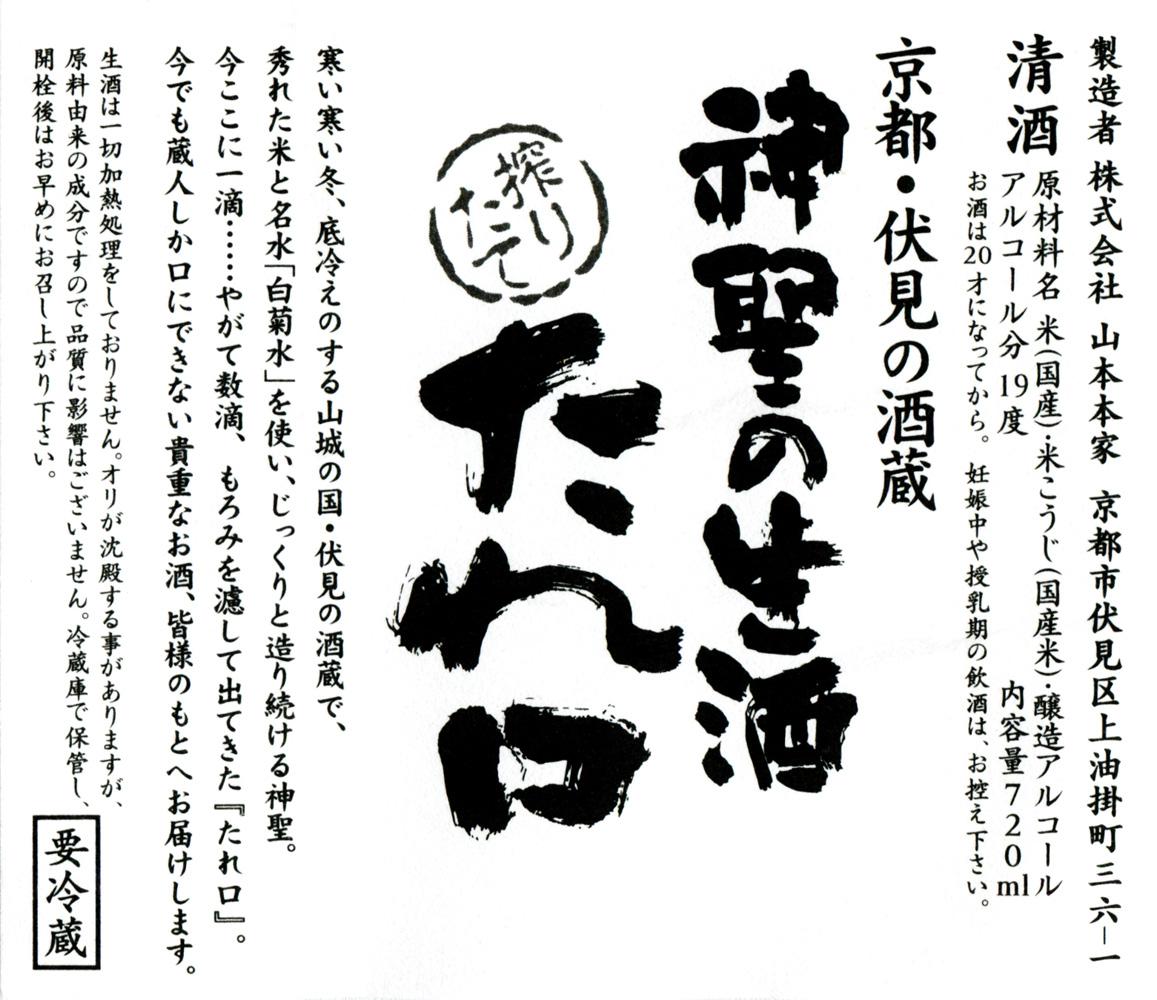 製造者 株式会社 山本本家 京都市伏見区上油掛町三六ー一
清酒
原材料名 米(国産)・米こうじ(国産米)・醸造アルコール
アルコール分 19度 内容量720ml
お酒は20才になってから。 妊娠中や授乳期の飲酒は、お控え下さい。
京都・伏見の酒蔵
神聖の生酒
搾り
たて
たれ口
寒い寒い冬、底冷えのする山城の国・伏見の酒蔵で、
秀れた米と名水「白菊水」を使い、じっくりと造り続ける神聖。
今ここに一滴……やがて数滴、もろみを濾して出てきた『たれ口』。
今でも蔵人しか口にできない貴重なお酒、皆様のもとへお届けします。
生酒は一切加熱処理をしておりません。オリが沈殿する事がありますが、
原料由来の成分ですので品質に影響はございません。冷蔵庫で保管し、
開栓後はお早めにお召し上がり下さい。
要冷蔵